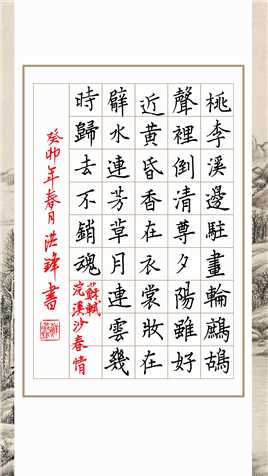 桃李溪邊駐畫輪鷓鴣
聲裡倒清尊夕陽雖好
近黃昏香在衣裳妝在
臂水連芳草月連雲幾
時歸去不銷魂
蘇軾
浣溪沙春情
癸卯年春月洪鋒書